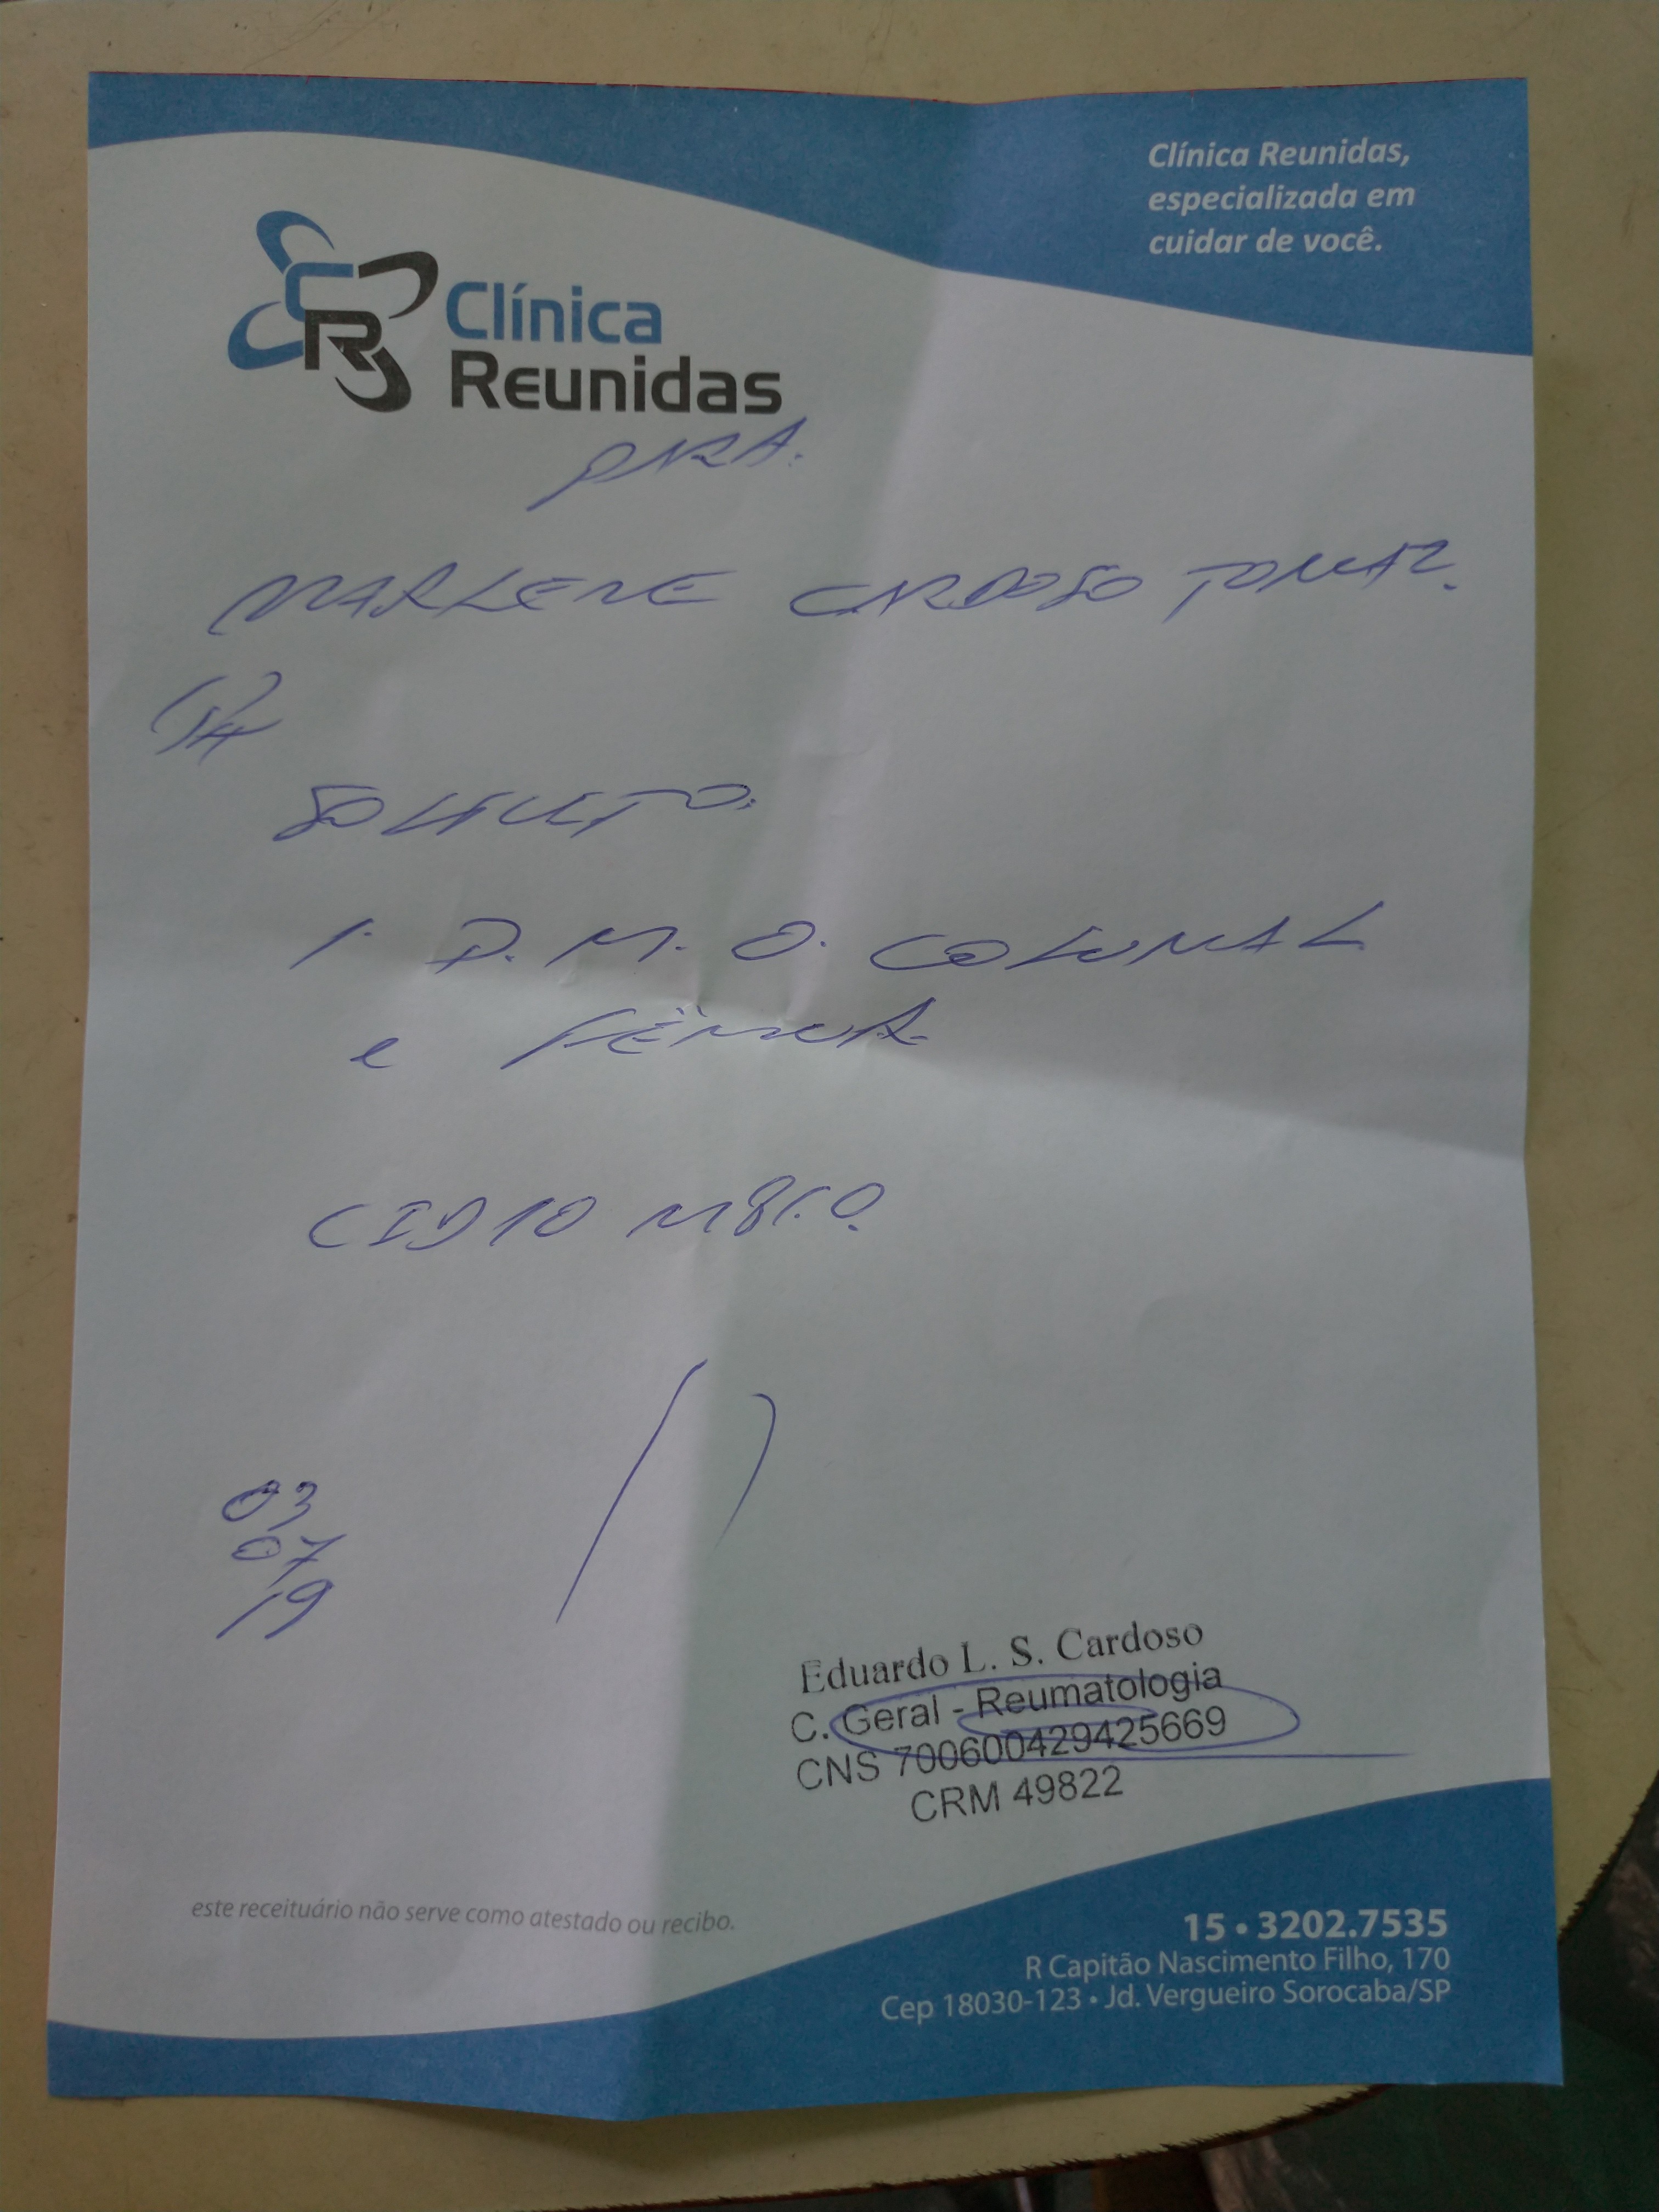 Clínica Reunidas,
especializada em
cuidar de você.
CR Clínica
Reunidas
PARA.
MARLENE CARDOSO TOMAZ.
SOLICITO:
1. D.M.O. COLUNA L
e FÊMUR
CID10 M81.0.
03
07
19
Eduardo L. S. Cardoso
C. Geral - Reumatologia
CNS 700600429425669
CRM 49822
este receituário não serve como atestado ou recibo.
15 • 3202.7535
R Capitão Nascimento Filho, 170
Cep 18030-123 • Jd. Vergueiro Sorocaba/SP